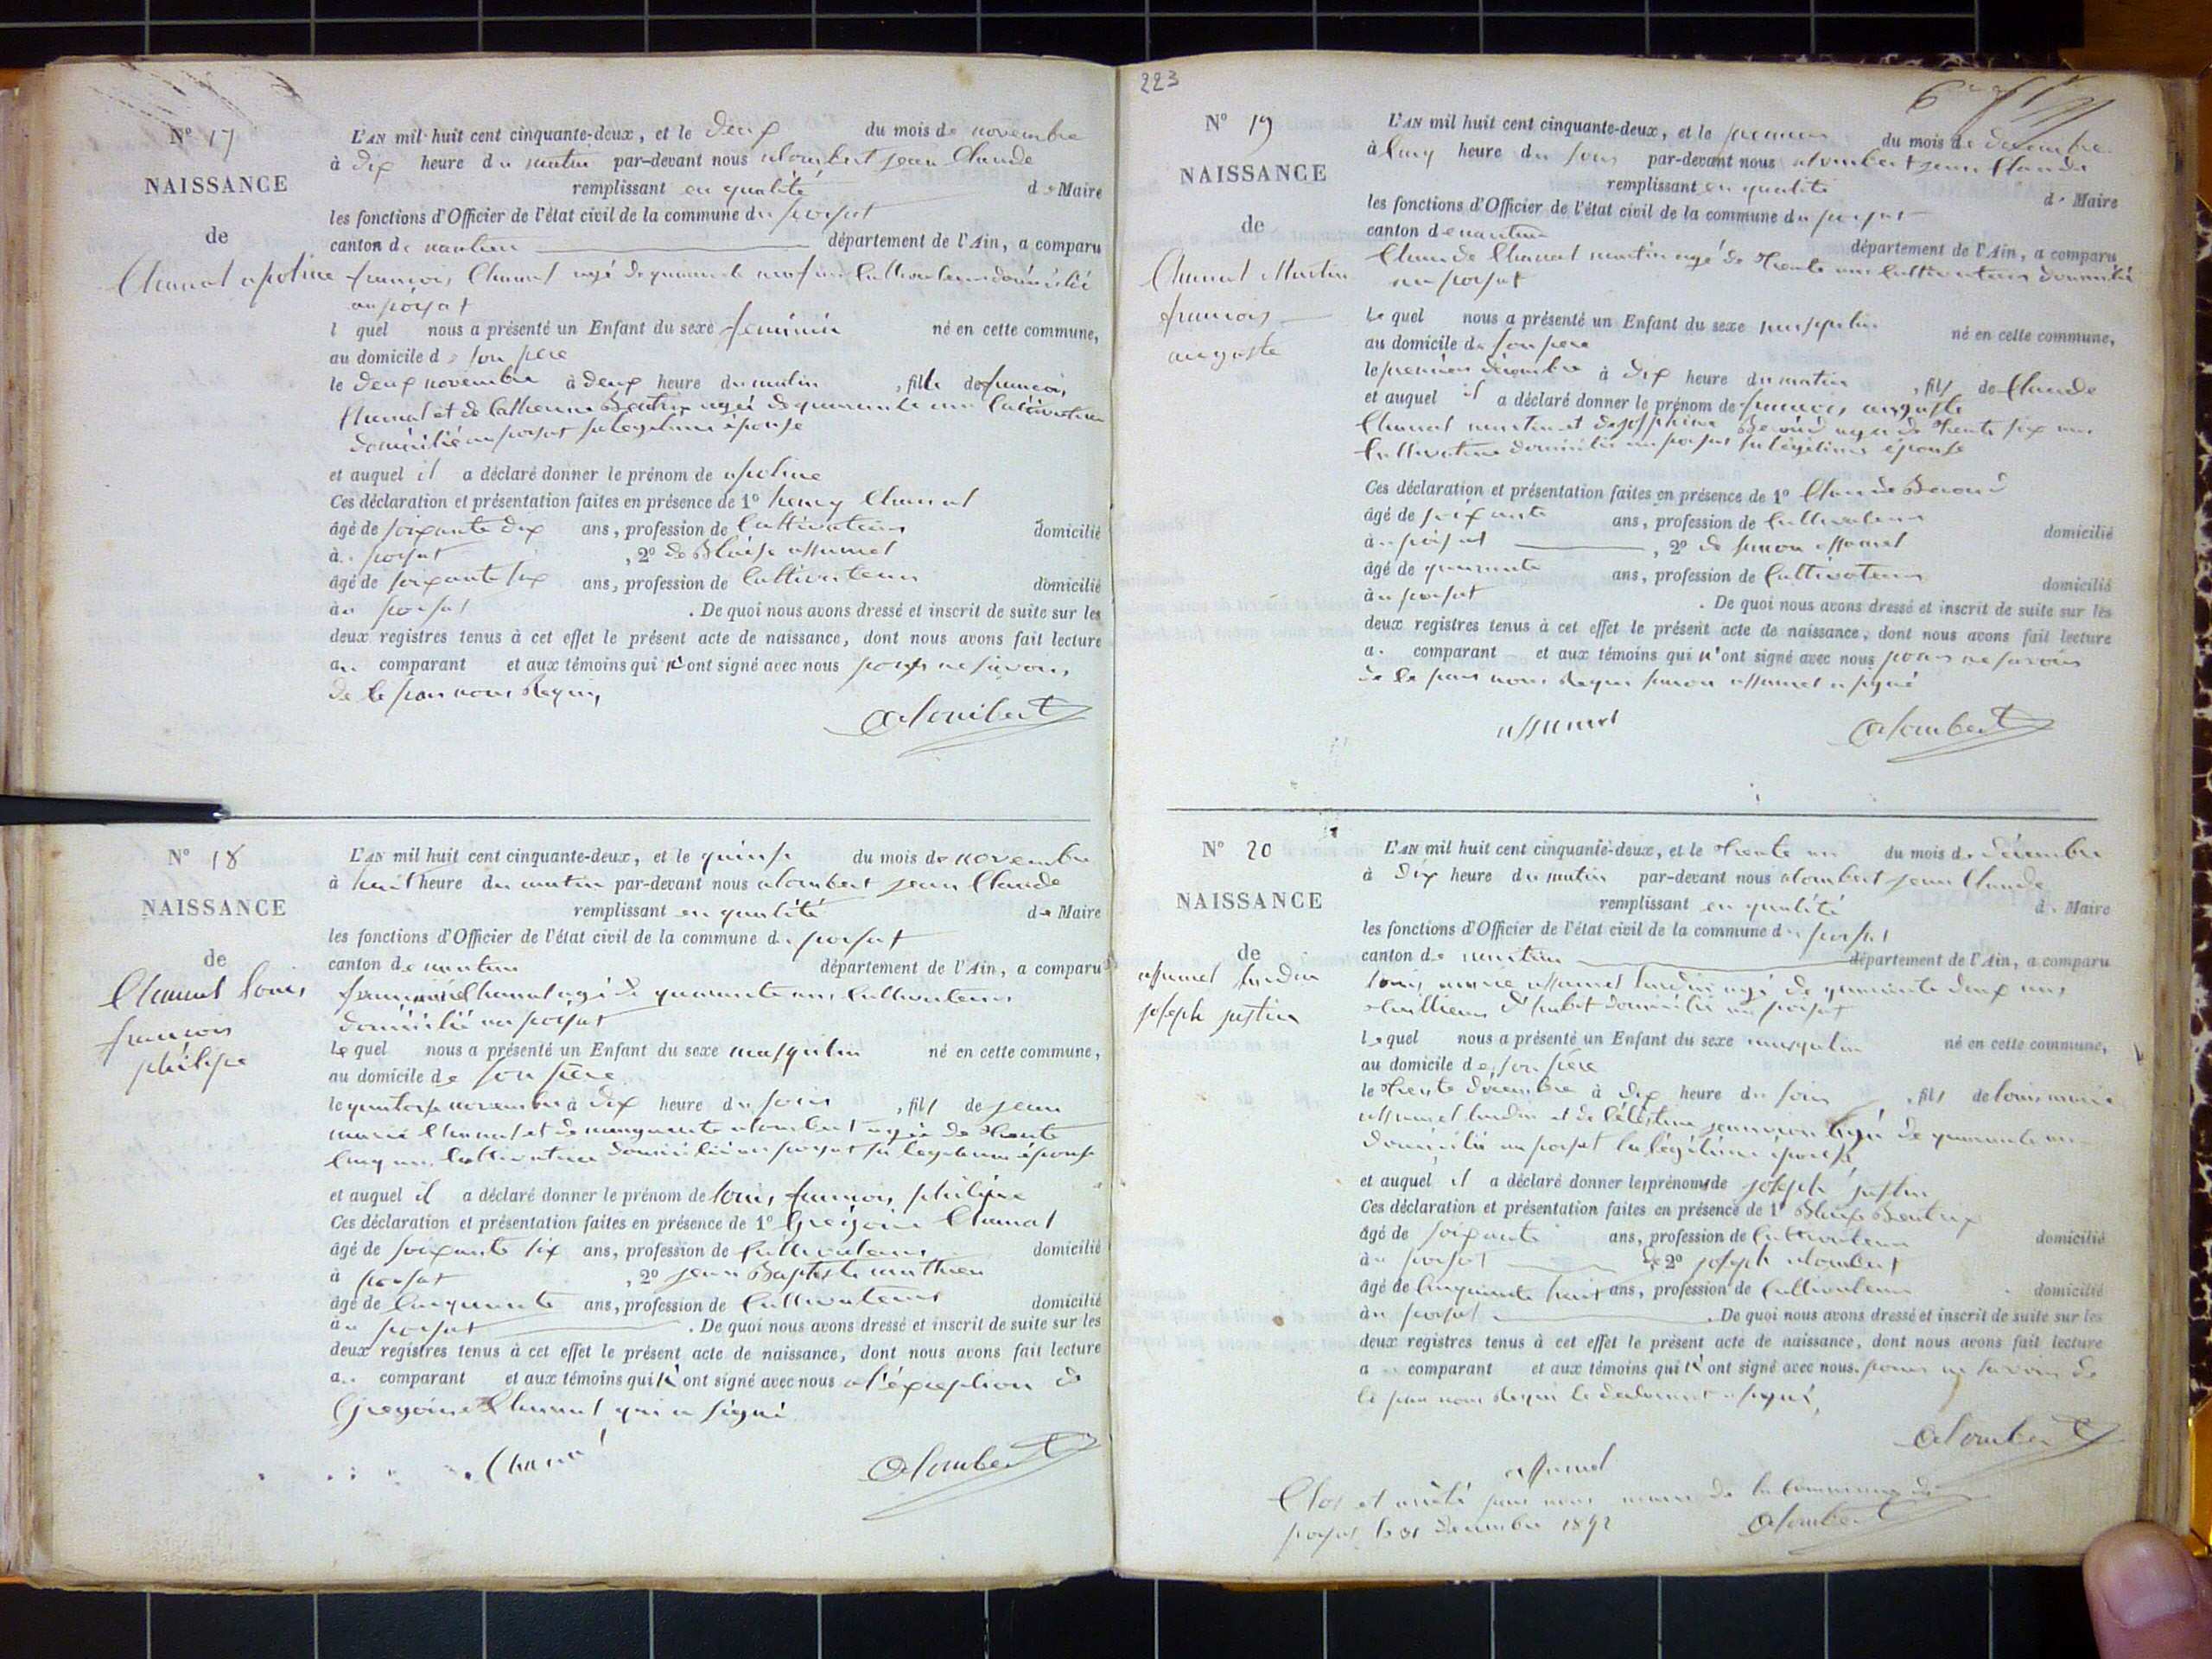 N° 17
NAISSANCE
de
Chanal apoline
L'AN mil huit cent cinquante-deux, et le deux du mois de novembre
à dix heure du matin par-devant nous alombert jean Claude
remplissant en qualité de Maire
les fonctions d'Officier de l'état civil de la commune du poisat
canton de nantua département de l'Ain, a comparu
françois Chanal agé de quarante neuf ans Cultivateur domicilié
au poisat
l quel nous a présenté un Enfant du sexe feminin né en cette commune,
au domicile de son père
le deux novembre à deux heure du matin , fille de françois
Chanal et de Catherine Beatrix agée de quarante ans Cultivatrice
domicilié au poisat sa legitime épouse
et auquel il a déclaré donner le prénom de apoline
Ces déclaration et présentation faites en présence de 1° henry Chanal
âgé de soixante dix ans, profession de Cultivateur domicilié
à poisat , 2° de Blaise assumel
âgé de soixante six ans, profession de Cultivateur domicilié
au poisat . De quoi nous avons dressé et inscrit de suite sur les
deux registres tenus à cet effet le présent acte de naissance, dont nous avons fait lecture
au comparant et aux témoins qui n'ont signé avec nous pour ne savoir,
de le par nous Requis,
Alombert
N° 18
NAISSANCE
de
Chanal louis
françois
philipe
L'AN mil huit cent cinquante-deux, et le quinse du mois de novembre
à huit heure du matin par-devant nous alombert jean Claude
remplissant en qualité de Maire
les fonctions d'Officier de l'état civil de la commune du poisat
canton de nantua département de l'Ain, a comparu
Chanal agé de quarante ans Cultivateur
domicilié au poisat
le quel nous a présenté un Enfant du sexe masqulin né en cette commune,
au domicile de son père
le quatorse novembre à dix heure du soir , fils de jean
marie Chanal et de marguerite alombert agée de trente
Cinq ans Cultivatrice domicilié au poisat sa legitime épouse
et auquel il a déclaré donner le prénom de louis françois philipe
Ces déclaration et présentation faites en présence de 1° Grégoire Chanal
âgé de soixante six ans, profession de Cultivateur domicilié
à poisat , 2° jean Baptiste mathieu
âgé de Cinquante ans, profession de Cultivateur domicilié
au poisat . De quoi nous avons dressé et inscrit de suite sur les
deux registres tenus à cet effet le présent acte de naissance, dont nous avons fait lecture
au comparant et aux témoins qui n'ont signé avec nous a l'éxception de
Gregoire Chanal qui a signé
Chanal
Alombert
223
N° 19
NAISSANCE
de
Chanal Martin
françois
auguste
L'AN mil huit cent cinquante-deux, et le premier du mois de décembre
à Cinq heure du soir par-devant nous alombert jean Claude
remplissant en qualité de Maire
les fonctions d'Officier de l'état civil de la commune du poisat
canton de nantua département de l'Ain, a comparu
Claude Chanal martin agé de trente ans Cultivateur domicilié
au poisat
Le quel nous a présenté un Enfant du sexe masqulin né en cette commune,
au domicile de son père
le premier décembre à dix heure du matin , fils de Claude
et auquel il a déclaré donner le prénom de françois auguste
Chanal martin et de josephine Beroud agée de trente six ans
Cultivatrice domicilié au poisat sa légitime épouse
Ces déclaration et présentation faites en présence de 1° Claude Beroud
âgé de soixante ans, profession de Cultivateur domicilié
au poisat , 2° de simon assumel
âgé de quarante ans, profession de Cultivateur domicilié
au poisat . De quoi nous avons dressé et inscrit de suite sur les
deux registres tenus à cet effet le présent acte de naissance, dont nous avons fait lecture
au comparant et aux témoins qui n'ont signé avec nous pour ne savoir
de le par nous Requis simon assumel a signé
assumel
Alombert
N° 20
NAISSANCE
de
assumel lurdin
joseph justin
L'AN mil huit cent cinquante-deux, et le trente un du mois de décembre
à dix heure du matin par-devant nous alombert jean Claude
remplissant en qualité de Maire
les fonctions d'Officier de l'état civil de la commune du poisat
canton de nantua département de l'Ain, a comparu
louis marie assumel lurdin agé de quarante deux ans
tailleur d'habit domicilié au poisat
le quel nous a présenté un Enfant du sexe masqulin né en cette commune,
au domicile de son père
le trente décembre à dix heure du soir , fils de louis marie
assumel lurdin et de Célestine agé de quarante ans
domicilié au poisat sa légitime épouse
et auquel il a déclaré donner les prénoms de joseph justin
Ces déclaration et présentation faites en présence de 1° Blaise Beatrix
âgé de soixante ans, profession de Cultivateur domicilié
au poisat de 2° joseph alombert
âgé de Cinquante trois ans, profession de Cultivateur domicilié
au poisat . De quoi nous avons dressé et inscrit de suite sur les
deux registres tenus à cet effet le présent acte de naissance, dont nous avons fait lecture
au comparant et aux témoins qui n'ont signé avec nous pour ne savoir de
le par nous Requis le declarant a signé,
Alombert
assumel
Clos et arrêté par nous maire de la Commune du
poisat le 31 décembre 1852
Alombert